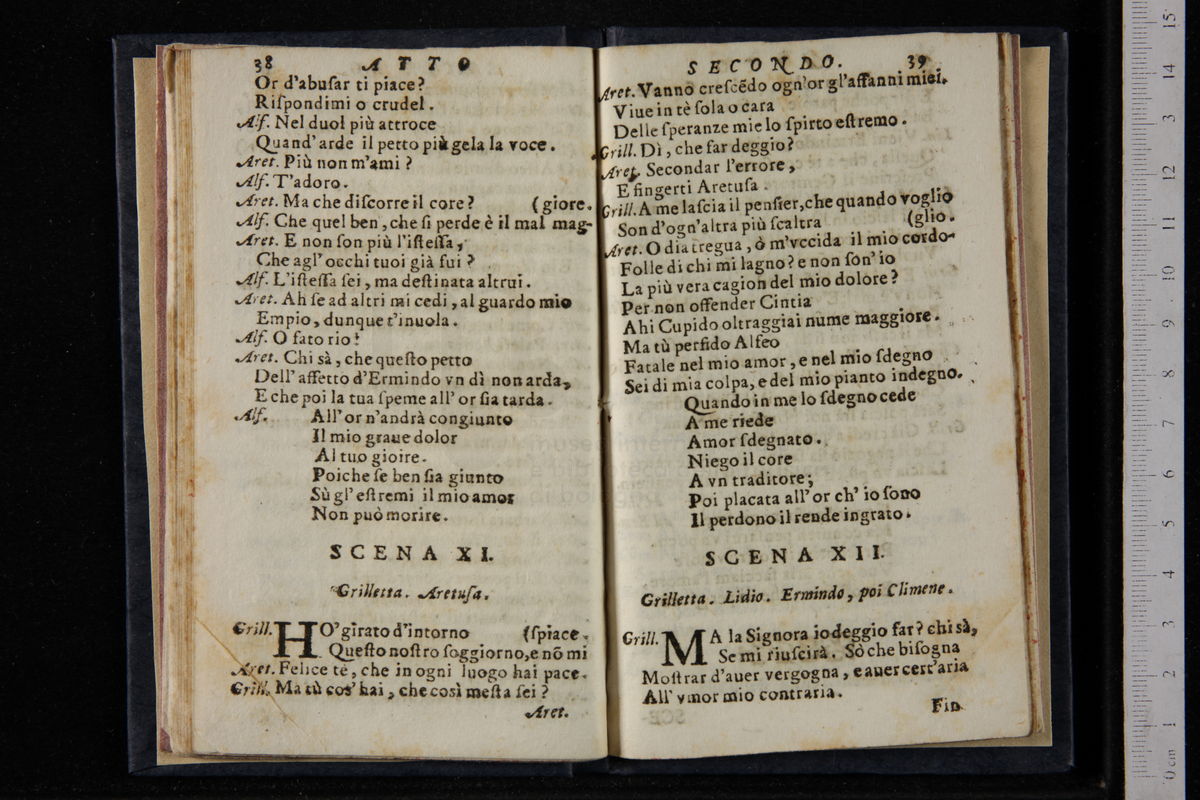 38 ATTO
Or d'abuſar ti piace?
Riſpondimi o crudel.
Alf. Nel duol più attroce
Quand'arde il petto più gela la voce.
Aret. Più non m'ami?
Alf. T'adoro.
Aret. Ma che diſcorre il core? (giore.
Alf. Che quel ben, che ſi perde è il mal mag-
Aret. E non ſon più l'iſteſſa,
Che agl'occhi tuoi già fui?
Alf. L'iſteſſa ſei, ma deſtinata altrui.
Aret. Ah ſe ad altri mi cedi, al guardo mio
Empio, dunque t'inuola.
Alf. O fato rio!
Aret. Chi sà, che queſto petto
Dell'affetto d'Ermindo vn dì non arda,
E che poi la tua ſpeme all'or ſia tarda.
Alf. All'or n'andrà congiunto
Il mio graue dolor
Al tuo gioire.
Poiche ſe ben ſia giunto
Sù gl'eſtremi il mio amor
Non può morire.
SCENA XI.
Grilletta. Aretuſa.
Grill. HO'girato d'intorno (ſpiace.
Queſto noſtro ſoggiorno, e nõ mi
Aret. Felice tè, che in ogni luogo hai pace.
Grill. Ma tù cos'hai, che così meſta ſei?
Aret.
SECONDO. 39
Aret. Vanno creſcẽdo ogn'or gl'affanni miei.
Viue in tè ſola o cara
Delle ſperanze mie lo ſpirto eſtremo.
Grill. Dì, che far deggio?
Aret. Secondar l'errore,
E fingerti Aretuſa.
Grill. A me laſcia il penſier, che quando voglio
Son d'ogn'altra più ſcaltra (glio.
Aret. O dia tregua, ò m'vccida il mio cordo-
Folle di chi mi lagno? e non ſon'io
La più vera cagion del mio dolore?
Per non offender Cintia
Ahi Cupido oltraggiai nume maggiore.
Ma tù perfido Alfeo
Fatale nel mio amor, e nel mio ſdegno
Sei di mia colpa, e del mio pianto indegno.
Quando in me lo ſdegno cede
A me riede
Amor ſdegnato.
Niego il core
A vn traditore;
Poi placata all'or ch'io ſono
Il perdono il rende ingrato.
SCENA XII.
Grilletta. Lidio. Ermindo, poi Climene.
Grill. MA la Signora io deggio far? chi sà,
Se mi riuſcirà. Sò che biſogna
Moſtrar d'auer vergogna, e auer cert'aria
All'vmor mio contraria.
Fin